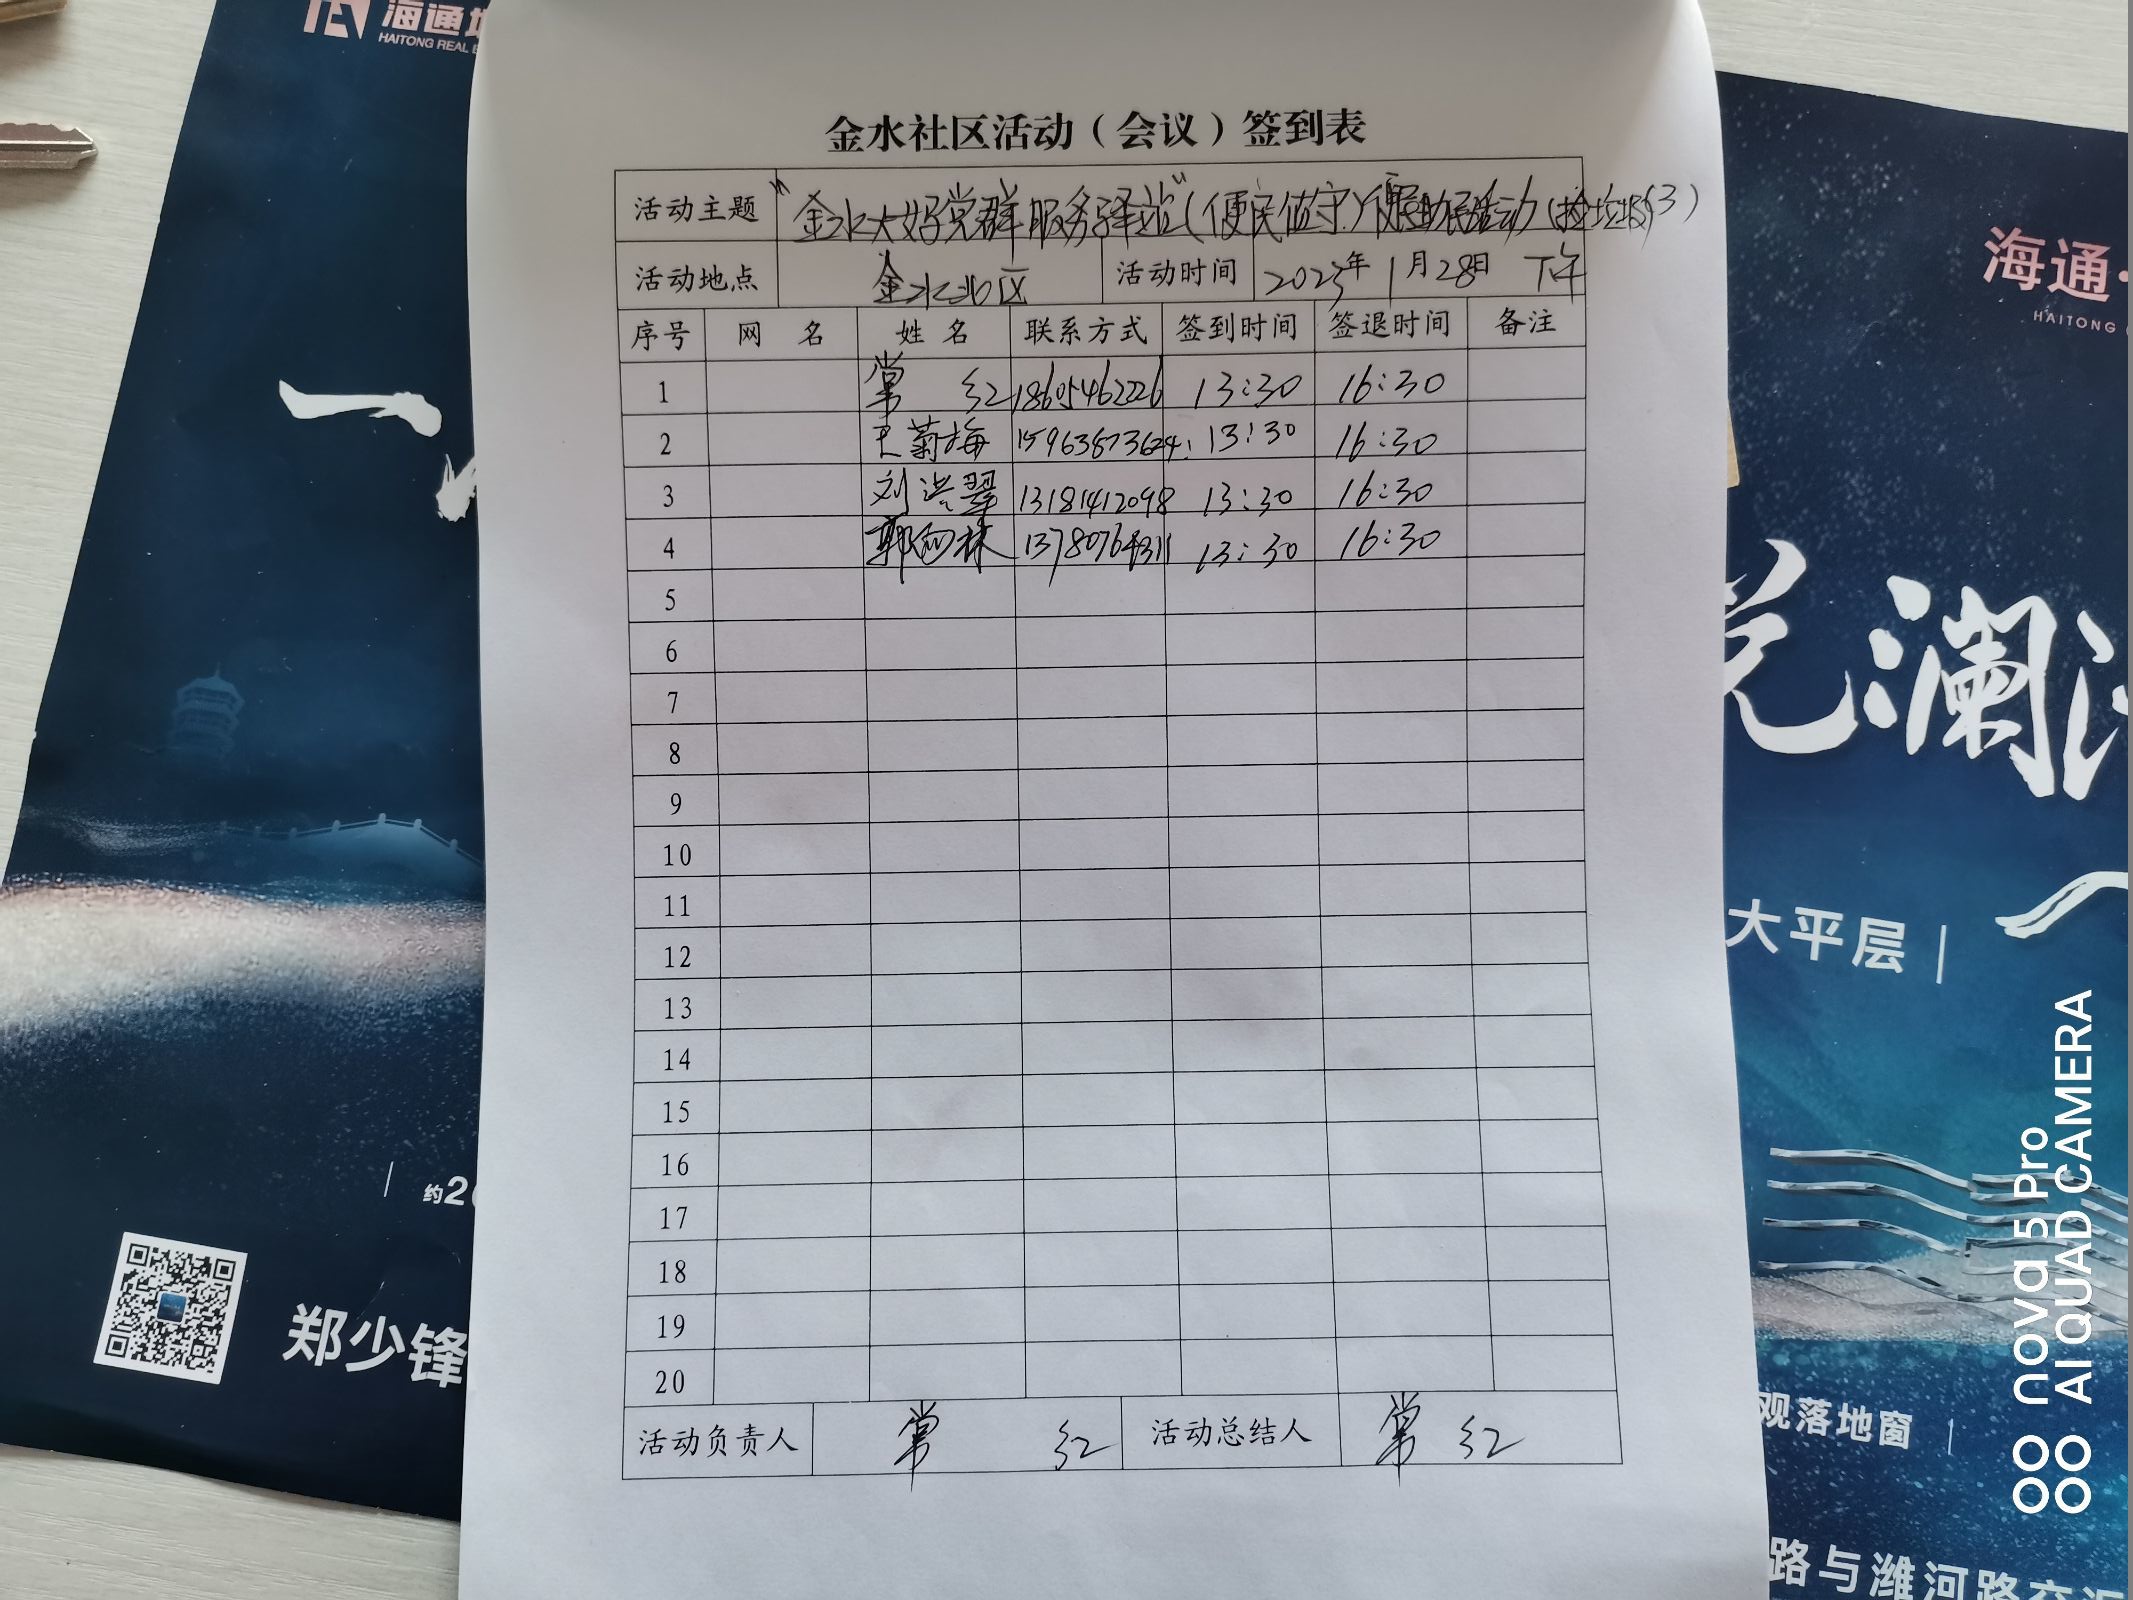 海通地
HAITONG REAL E
金水社区活动（会议）签到表
活动主题 "金水大好党群服务驿站"(便民值守)便民助民活动(捡垃圾)(3)
活动地点 金水北区 活动时间 2023年1月28日 下午
序号 网 名 姓 名 联系方式 签到时间 签退时间 备注
1 常 红 18605462226 13:30 16:30
2 王菊梅 15963873624 13:30 16:30
3 刘洪翠 13181412098 13:30 16:30
4 郭 林 13780764311 13:30 16:30
5
6
7
8
9
10
11
12
13
14
15
16
17
18
19
20
活动负责人 常 红 活动总结人 常 红
一
约20
郑少锋
海通·
HAITONG
瀾
大平层 |
观落地窗 |
路与潍河路交汇
nova 5 Pro
AI QUAD CAMERA